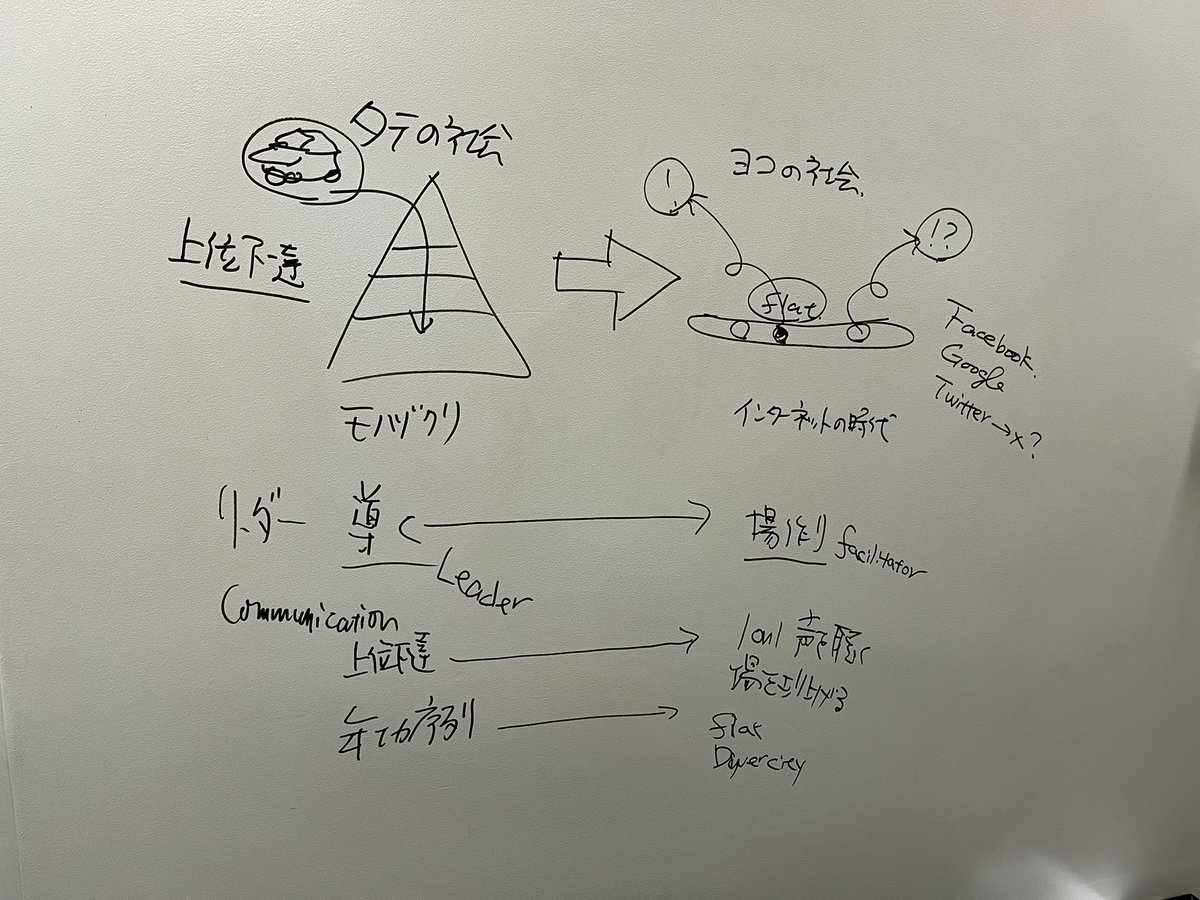 タテの社会
上位下達
モノヅクリ
ヨコの社会.
!
!?
flat.
Facebook.
Google
Twitter→x?
インターネットの時代
リーダー 導く → 場作り facilitator
Leader
Communication
上位下達 → 1on1 声を聴く
場を
年功序列 → flat
Divercity